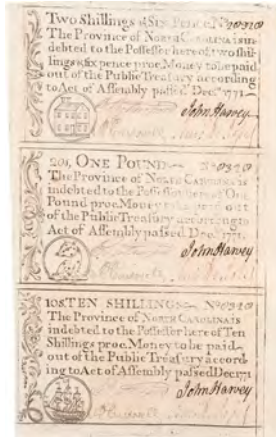 Two Shillings &SIX PENCE. No 0320
The Province of NORTH CAROLINA is in-
debted to the Possessor here of two shil-
lings & six pence proc. Money to be paid
out of the Public Treasury according
to Act of Assembly passed Decr. 1771
John Harvey
20s. ONE POUND No 0320
The Province of NORTH CAROLINA is
indebted to the Possessor here of One
Pound proc. Money to be paid out
of the Public Treasury according to
Act of Assembly passed Decr. 1771.
John Harvey
10S TEN SHILLINGS No 0320
The Province of NORTH CAROLINA is
indebted to the Possessor here of Ten
Shillings proc. Money to be paid
out of the Public Treasury accord
ing to Act of Assembly passed Dec 1771
John Harvey